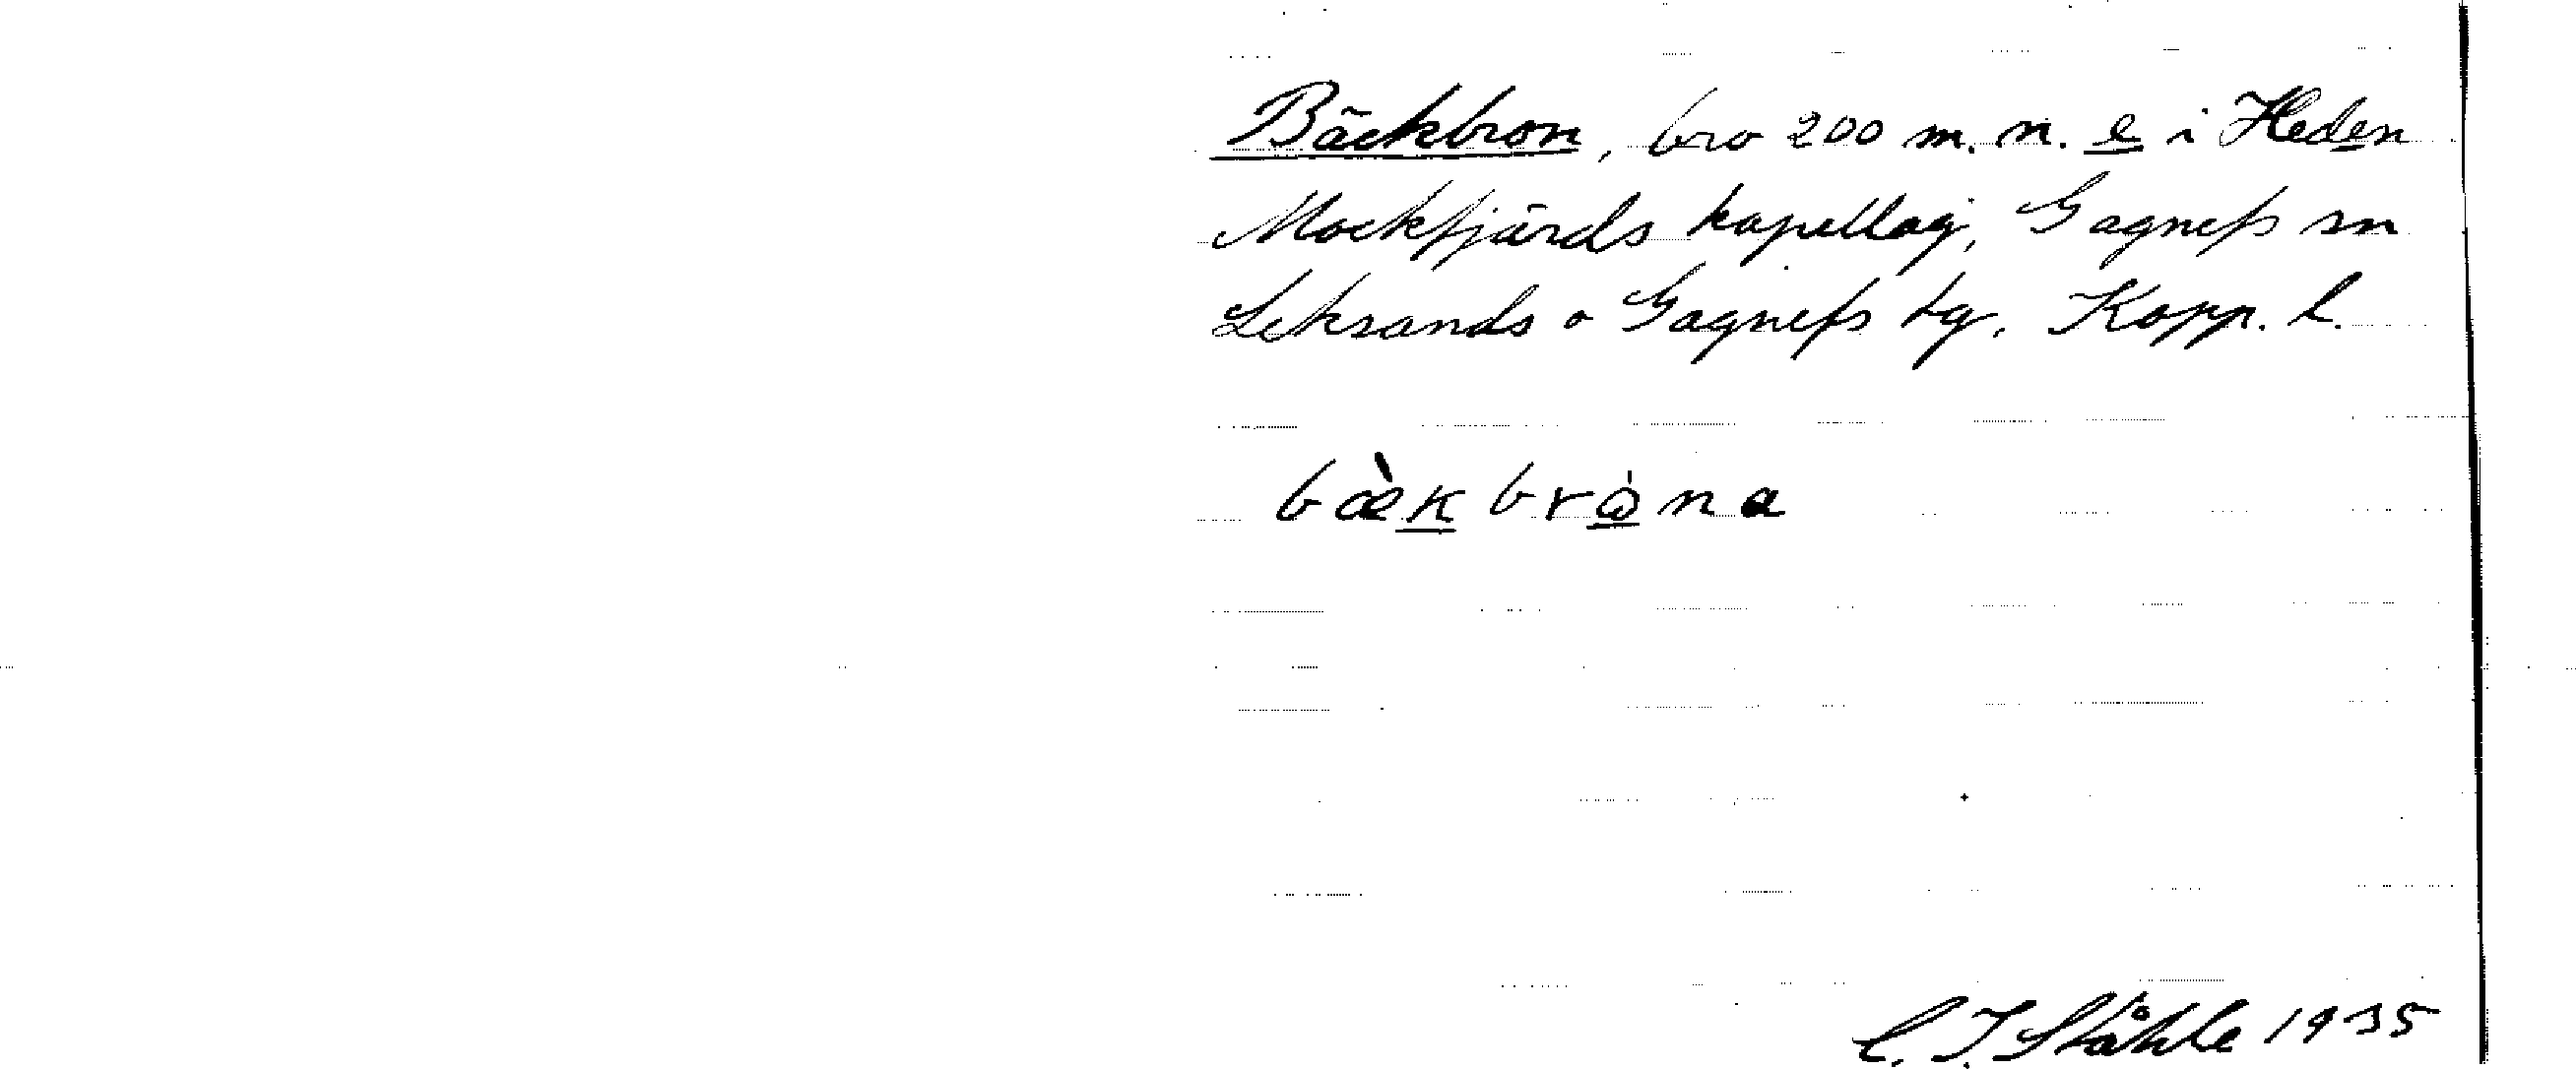 Bäckbron, bro 200 m. n. e i Heden
Mockfjärds kapellag, Gagnefs sn
Leksands o Gagnefs tg. Kopp. l.
bæ̀k brɷ̀na
C. I. Ståhle 1935